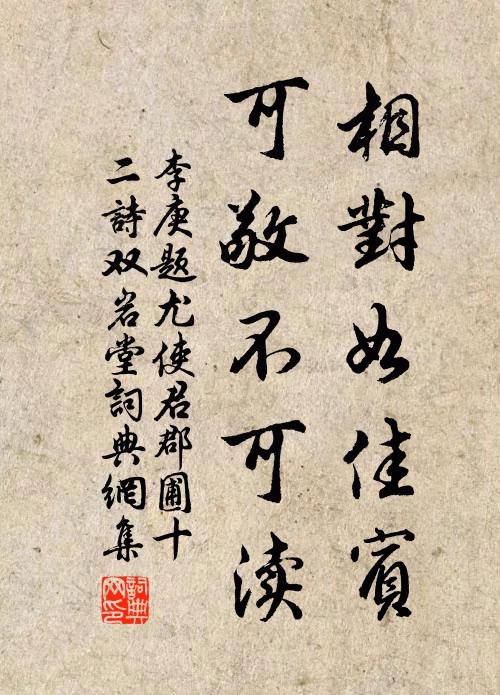 相對如佳賓
可敬不可渎
李庚题尤使君郡圃十
二詩双岩堂詞典網集
詞典
网印